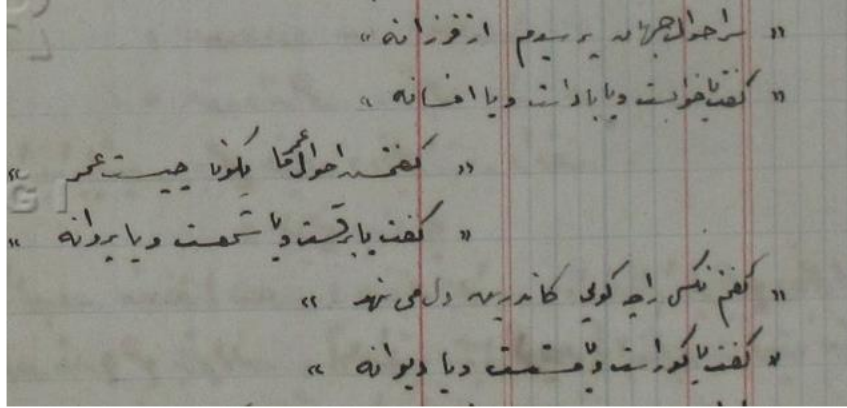 « سر احوال جهان پرسیدم از فرزانه »
« گفت یا خوابست و یا باد است و یا افسانه »
« گفتمش احوال عمر ما بگو تا چیست عمر »
« گفت یا برقست و یا شمعست و یا پروانه »
« گفتم آنکس را چه گوئی کاندرین دل می نهد »
« گفت یا کور است و یا مستست و یا دیوانه »